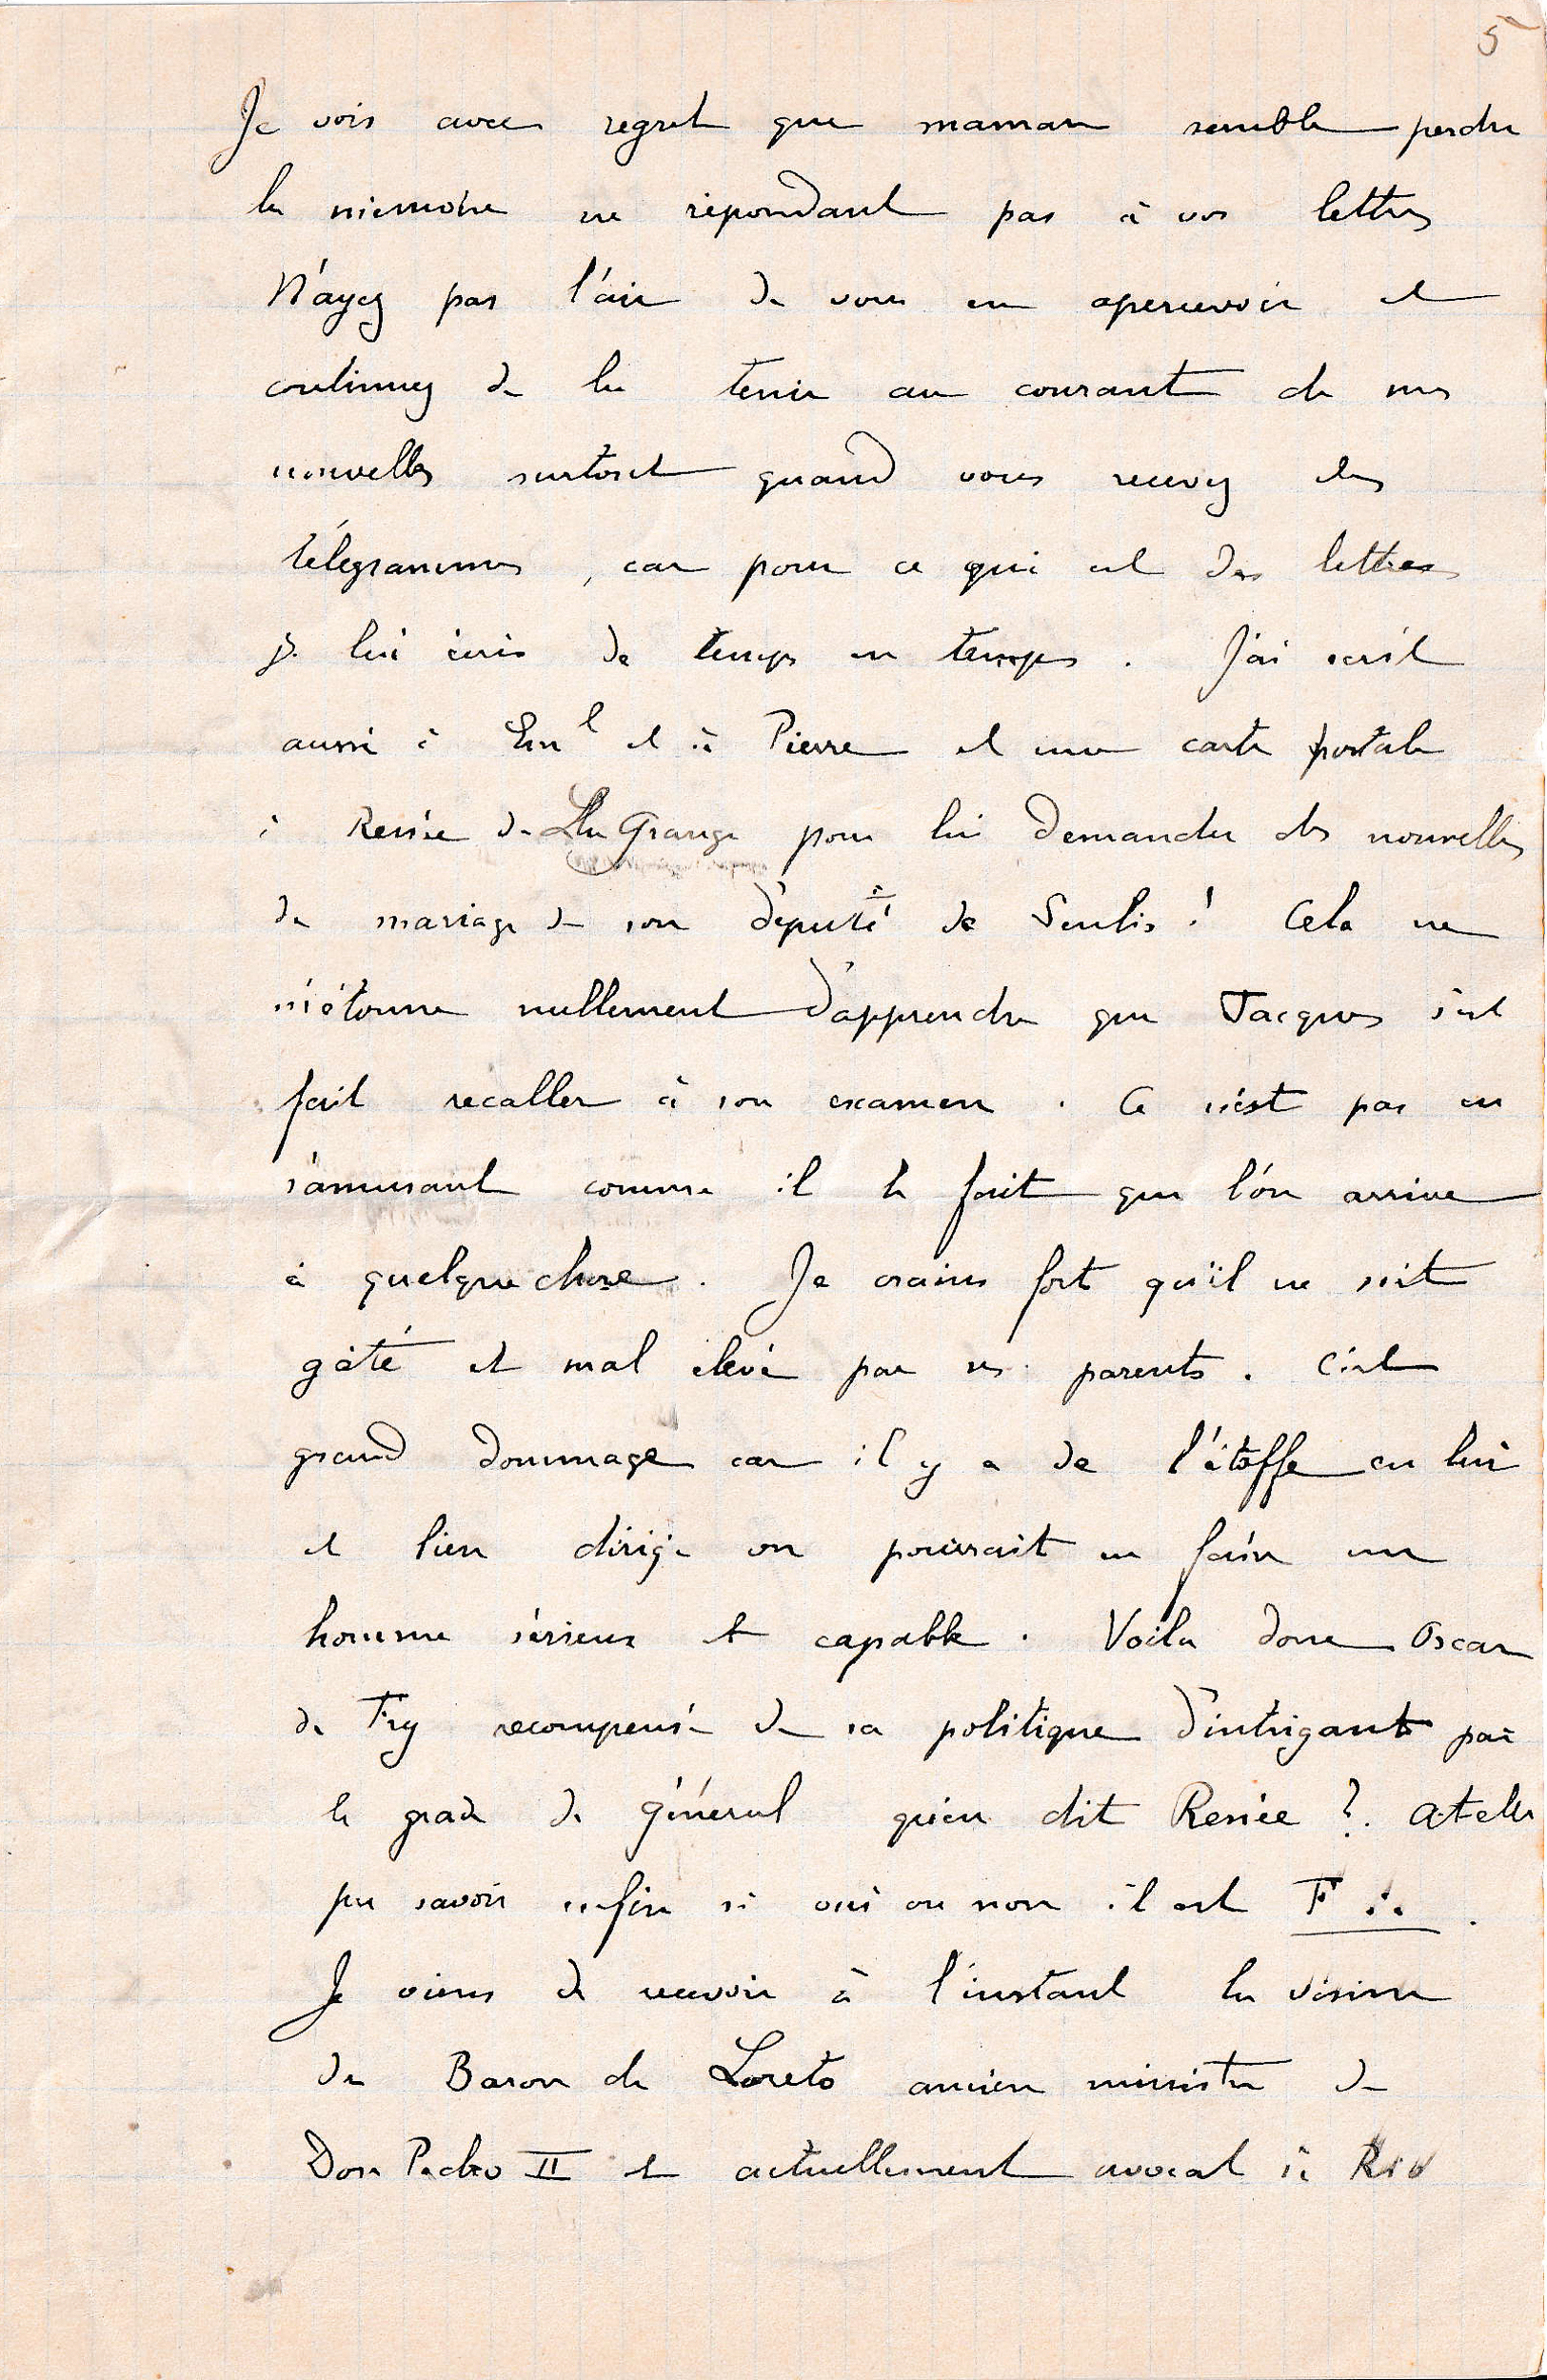 5
Je vois avec regret que maman semble perdre
la mémoire ne répondant pas à vos lettres
N'ayez pas l'air de vous en apercevoir et
continuez de la tenir au courant de mes
nouvelles surtout quand vous recevez des
télégrammes, car pour ce qui est des lettres
je lui écris de temps en temps. J'ai écrit
aussi à Em^l et à Pierre et une carte postale
à Renée de La Grange pour lui demander des nouvelles
du mariage de son député de Senlis! Cela ne
m'étonne nullement d'apprendre que Jacques s'est
fait recaller à son examen. Ce n'est pas en
s'amusant comme il le fait que l'on arrive
à quelque chose. Je crains fort qu'il ne soit
gâté et mal élevé par ses parents. C'est
grand dommage car il y a de l'étoffe en lui
et bien dirigé on pourrait en faire un
homme sérieux et capable. Voila donc Oscar
de Fry recompensé de sa politique d'intrigant par
le grade de Général qu'en dit Renée? a-t-elle
pu savoir enfin si oui ou non il est F∴.
Je viens de recevoir à l'instant la
du Baron de Loreto ancien ministre de
Don Pedro II et actuellement avocat à Rio